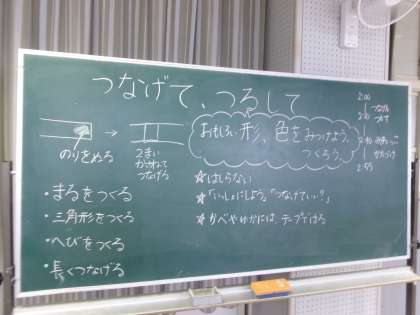 つなげて、つるして
のりをぬる
2まい
かさねて
つなげる
おもしろい形、色をみつけよう。
つくろう。
・まるをつくる
・三角形をつくる
・へびをつくる
・長くつなげる
☆はしらない
☆「いっしょにしよう」「つなげていい?」
☆かべやゆかには、テープではる
2:00
かたづけ
2:55